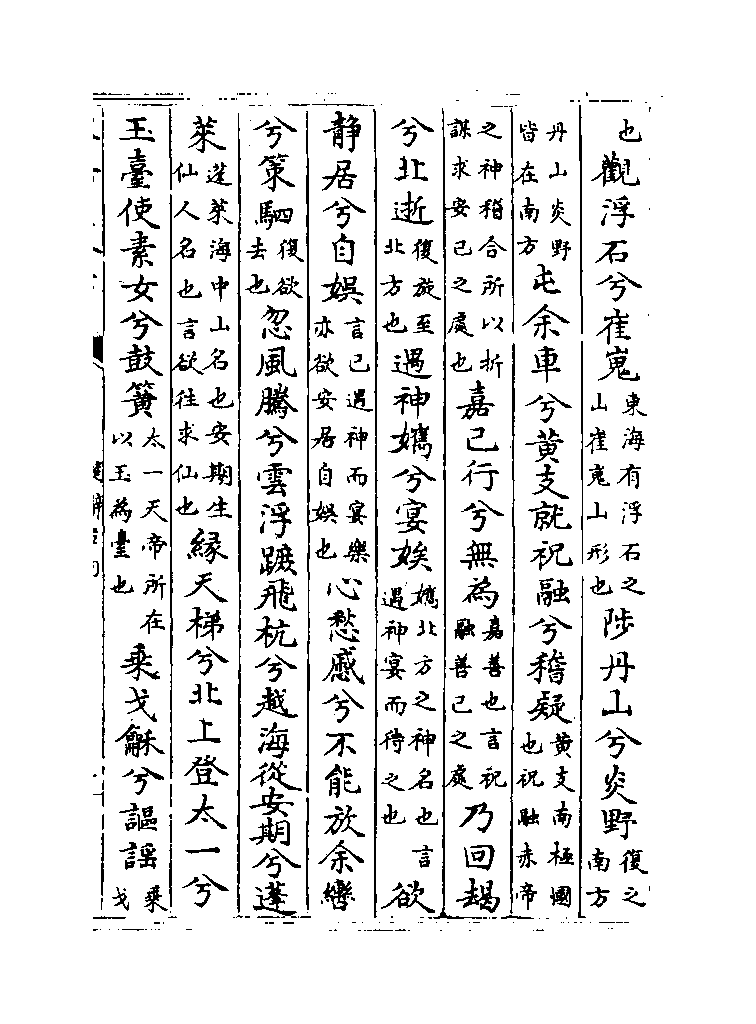 也觀浮石兮崔嵬東海有浮石之山崔嵬山形也陟丹山兮炎野復之南方
丹山炎野皆在南方屯余車兮黄支就祝融兮稽疑黄支南極國也祝融赤帝
之神稽合所以折謀求安已之處也嘉己行兮無為嘉善也言祝融善已之處乃回朅
兮北逝復旋至北方也遇神孈兮宴娭孈北方之神名也言遇神宴而待之也欲
静居兮自娛言已遇神而宴樂亦欲安居自娛也心愁慼兮不能放余轡
兮策駟復欲去也忽風騰兮雲浮蹠飛杭兮越海從安期兮蓬
萊蓬萊海中山名也安期生仙人名也言欲往求仙也緣天梯兮北上登太一兮
玉臺使素女兮鼓簧太一天帝所在以玉為臺也乘戈龢兮謳謠乘戈